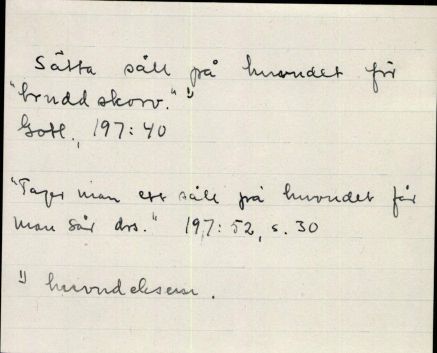 Sätta såll på huvudet får
"brudd skorv." 1)
Gotl., 197:40
"Tager man ett såll på huvudet får
man sår drs." 197:52, s. 30
1) huvudeksem.